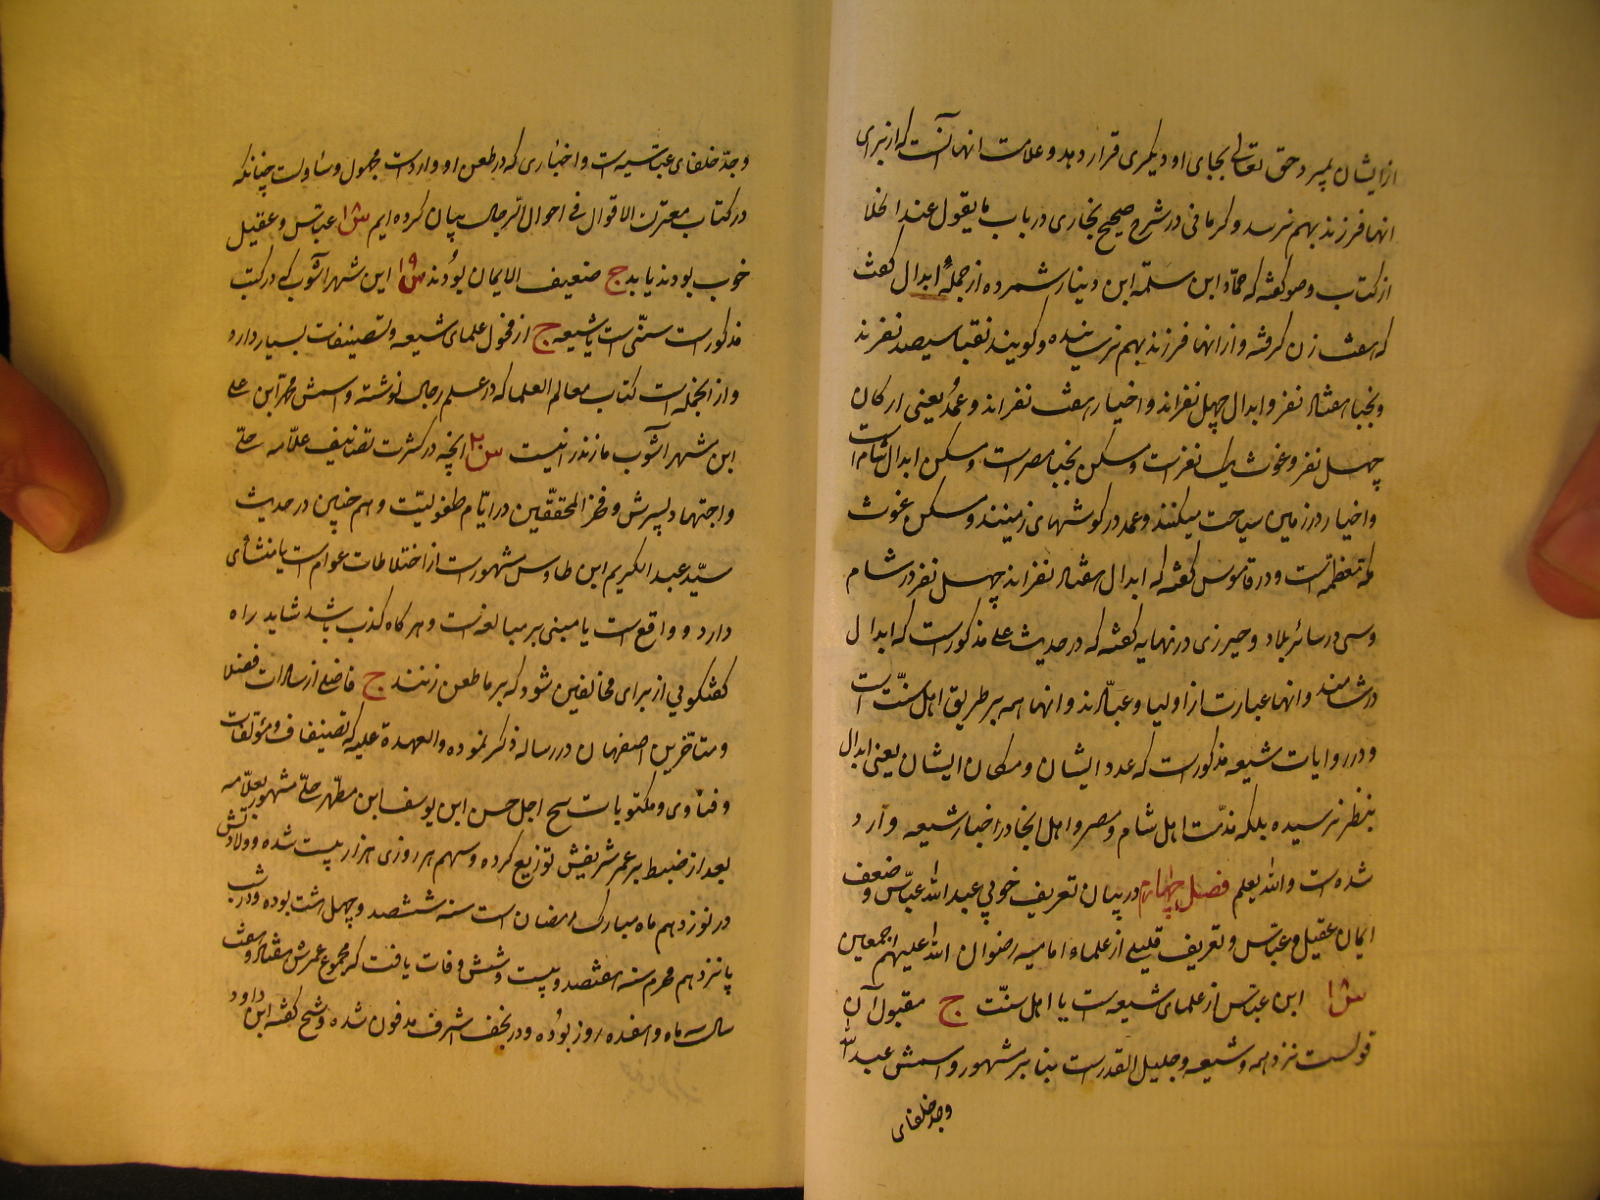 از ایشان بمیرد حق تعالی بجای او دیگری قرار دهد و علامت انها آنست که از برای
انها فرزند بهم نرسد و کرمانی در شرح صحیح بخاری در باب ما یقول عند الخلا
از کتاب وضو گفته که حماد ابن سلمة ابن دینار شمرده از جمله ابدال گفت
که هفت زن گرفته و از انها فرزند بهم نرسانیده و گویند نقبا سیصد نفرند
و نجبا هفتاد نفر و ابدال چهل نفراند و اخیار هفت نفراند و عمد یعنی ارکان
چهل نفر و غوث یک نفرست و مسکن نجبا مصر است و مسکن ابدال شام است
و اخیار در زمین سیاحت میکنند و عمد در گوشهای زمینند و مسکن غوث
مکه معظمه است و در قاموس گفته که ابدال هفتاد نفراند چهل نفر در شام
و سی در سائر بلاد و جزری در نهایه گفته که در حدیث علی مذکور است که ابدال
در شامند و انها عبارت از اولیا و عبادند و انها همه بر طریق اهل سنت است
و در روایات شیعه مذکور است که عدد ایشان و مکان ایشان یعنی ابدال
بنظر نرسیده بلکه مذمت اهل شام و مصر و اهل انجا در اخبار شیعه وارد
شده است والله یعلم فصل چهارم در بیان تعریف خوبی عبد الله عباس و ضعف
ایمان عقیل و عباس و تعریف قلیلی از علماء امامیه رضوان الله علیهم اجمعین
س ابن عباس از علمای شیعه ست یا اهل سنت ج مقبول آن
قولست نزد همه و شیعه و جلیل القدر است بنابر مشهور و اسمش عبد الله
وجد خلفای
وجدّ خلفای عباسیه است و اخباری که در طعن او وارد است مجهول و مأولست چنانکه
در کتاب معترک الاقوال فی احوال الرجال بیان کرده ایم س عباس و عقیل
خوب بودند یا بد ج ضعیف الایمان بودند س ابن شهر آشوب که در کتب
مذکور است سنّی است یا شیعه ج از فحول علمای شیعه و تصنیفات بسیار دارد
و از انجمله است کتاب معالم العلما که در علم رجال نوشته و اسمش محمد ابن علی
ابن شهر آشوب مازندرانیست س انچه در کثرت تصانیف علامه حلی
و اجتهاد پسرش و فخر المحققین در ایام طفولیّت و هم چنین در حدیث
سیّد عبد الکریم ابن طاوس مشهور است از اختلاطات عوام است یا منشأی
دارد و واقع است یا مبنی بر مبالغه است و هر گاه کذب باشد شاید راه
گفتگویی از برای مخالفین شود که بر ما طعن زنند ج فاضلی از سادات فضلا
و متأخرین اصفهان در رساله ذکر نموده والعهدة علیه که تصنیفات و مؤلفات
و فتاوی و مکتوبات شیخ اجل حسن ابن یوسف ابن مطهر حلی مشهور بعلامه
بعد از ضبط بر عمر شریفش توزیع کرده و سهم هر روزی هزار بیت شده و ولادتش
در نوزدهم ماه مبارک رمضان است سنه ششصد و چهل هشت بوده و در شب
پانزدهم محرم سنه هفتصد و بیست و شش وفات یافت که مجموع عمرش هفتاد و هفت
سال سه ماه و هفده روز بوده و در نجف اشرف مدفون شده و شیخ گفته ابن داود